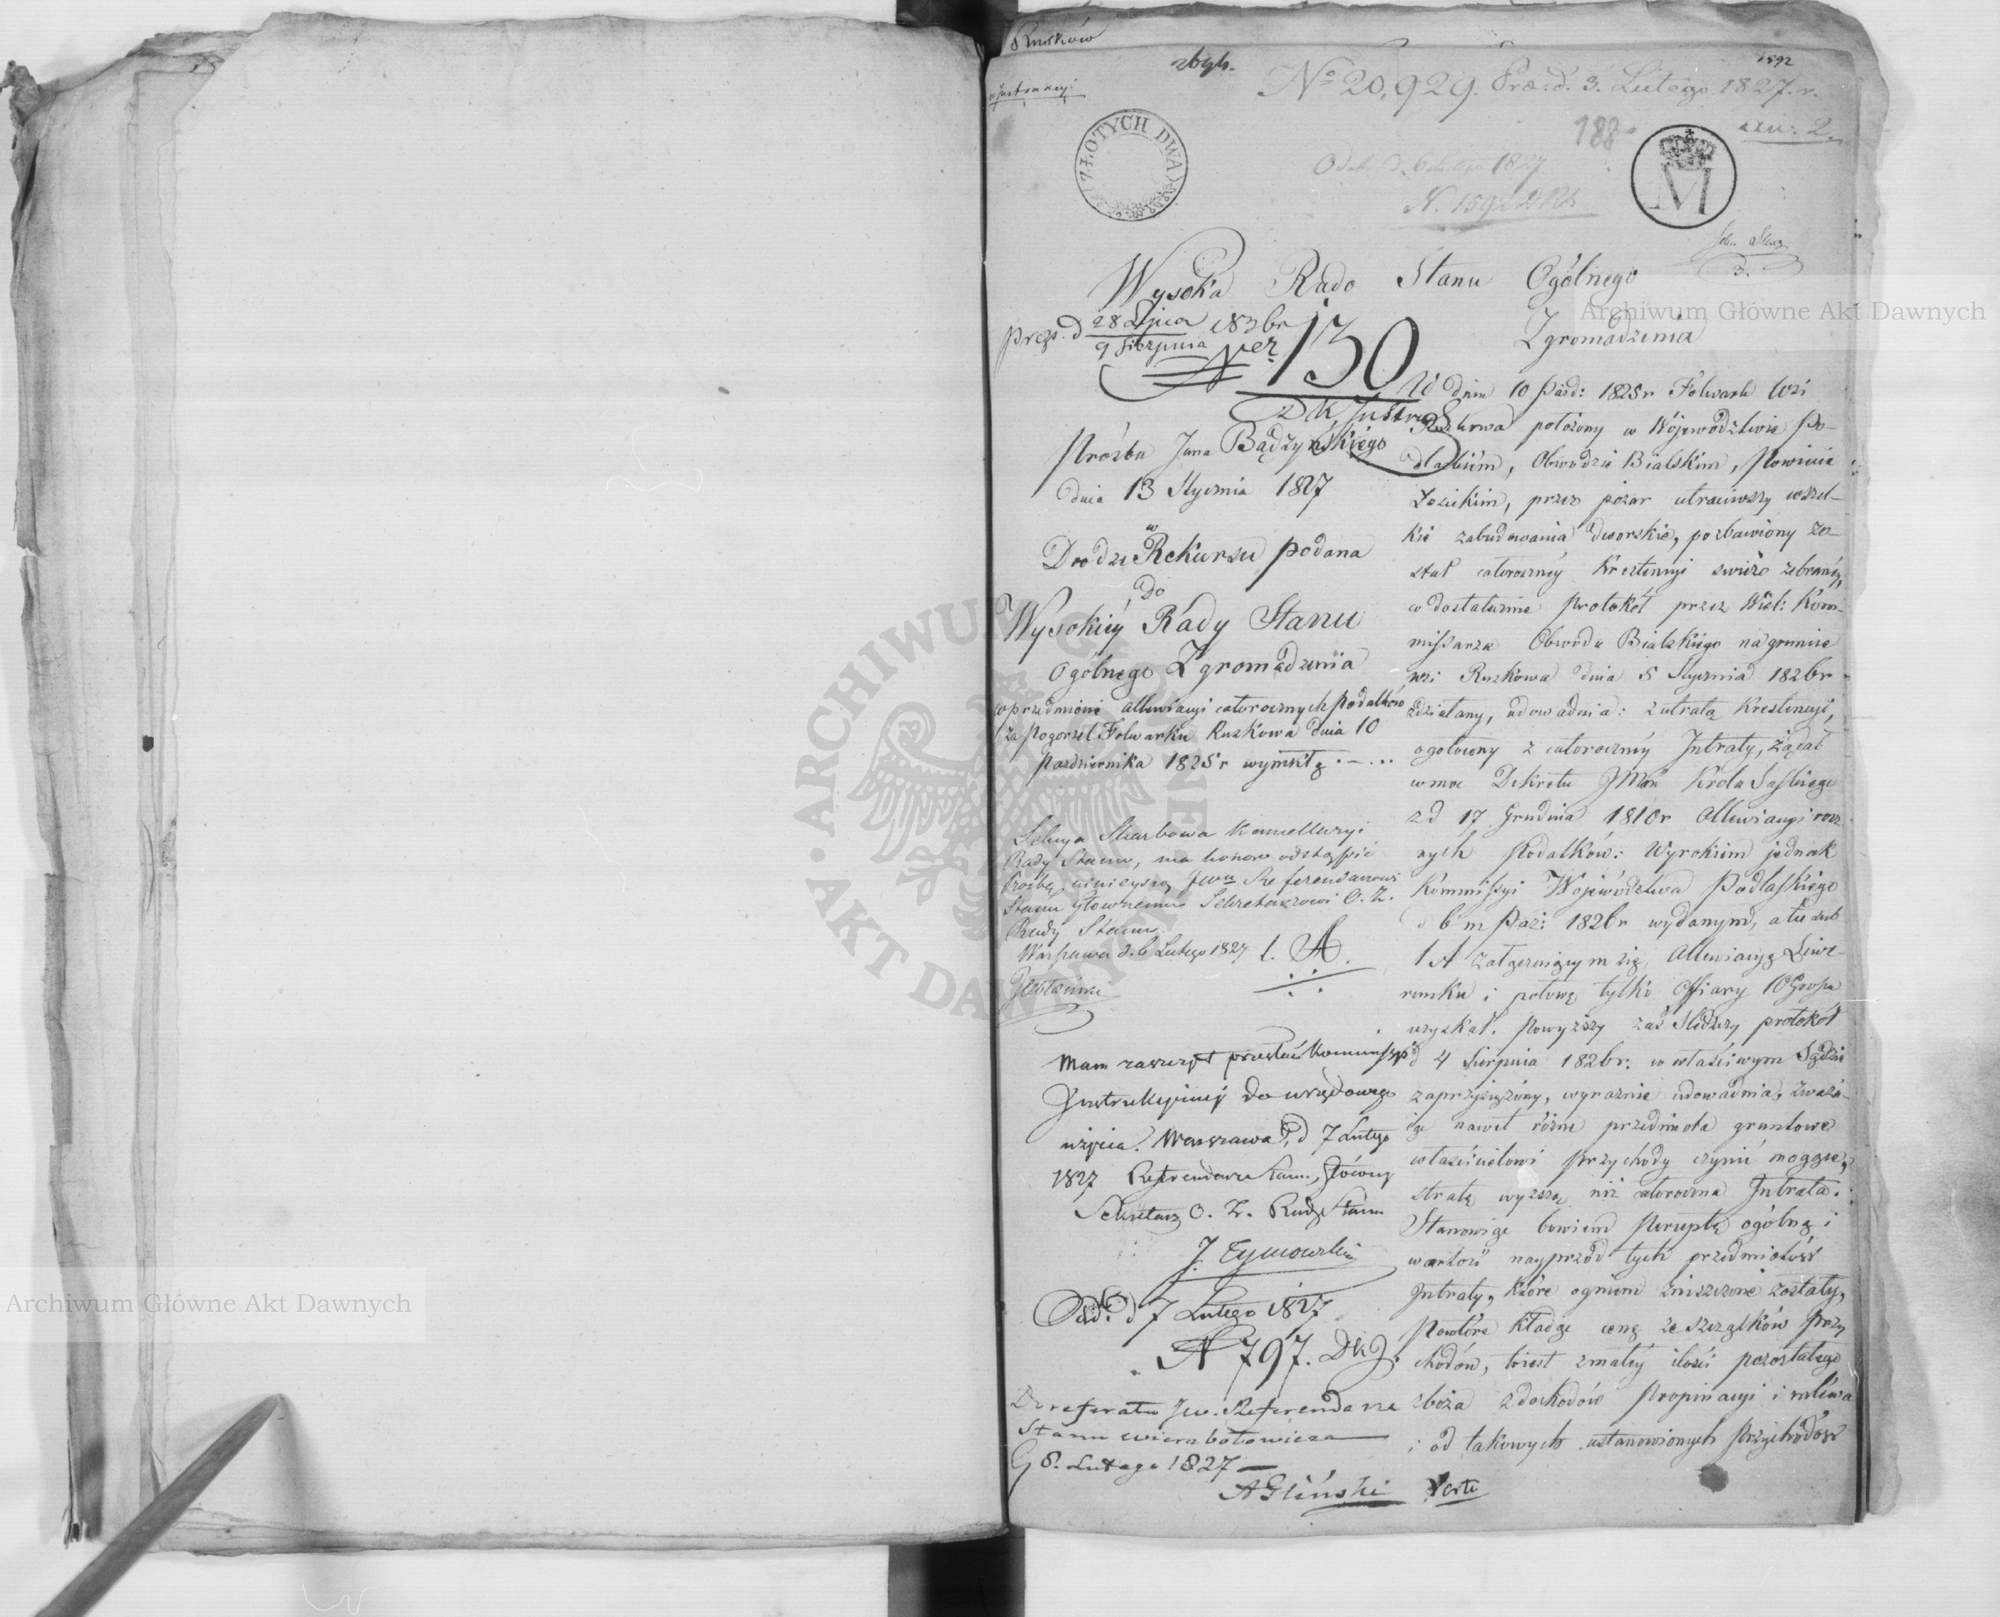 Ruskow
zbyt.
1592
No 20,929. Præd. 3. Lutego 1827. r.
ZŁOTYCH DWA
188
Odeb. d. 6 Lutego 1827
N. 1592 DRS
M
Wysoka Rado Stanu Ogólnego
Zgromadzenia
prezs. d 28 Lipca 1826r
9 Sierpnia
Ner 130
Prośba Jana Bądzyńskiego
dnia 13 Stycznia 1827
w
Drodze Rekursu podana
Do
Wysokiéy Rady Stanu
Ogólnego Zgromadzenia
w przedmiocie allewiacyi całorocznych Podatków
za Pogorzel Folwarku Ruskowa dnia 10
Pazdziernika 1825r wynikłą
Sekcya Skarbowa Kancellaryi
Rady Stanu, ma honor odstąpić
Prośbę ninieyszą Jwu Referendarzowi
Stanu Głównemu Sekretarzowi O. Z.
Rady Stanu
Warszawa d. 6 Lutego 1827
Mam zaszczyt przesłać Kommissyi
Instrukcyiney do urzędowego
użycia. Warszawa d 7 Lutego
1827 Referendarz Stanu, Główny
Sekretarz O. Z. Rady Stanu
J. Tymowski
Odd. d 7 Lutego 1827
N 797. DKJ.
Do referatu Jw. Referendarza
Stanu Wierzbołowicza
8. Lutego 1827
AGliński
W dniu 10 Paźd: 1825r Folwark Wsi
Ruskowa położony w Województwie Po-
dlaskim, Obwodzie Bialskim, Powiecie
Łosickim, przez pożar utraciwszy wszel-
kie zabudowania dworskie, pozbawiony zo-
stał całorocznéy Krestencyi świeżo zebranéy,
co dostatecznie Protokół przez Wiel: Kom-
missarza Obwodu Bialskiego na gruncie
wsi Ruskowa dnia 5 Stycznia 1826r
zdziałany, udowadnia: z utratą Krestencyi,
ogołocony z całorocznéy Intraty, żądał
w moc Dekretu JMci Króla Saskiego
z d 17 Grudnia 1810r Allewiacyi rocz-
nych Podatków: Wyrokiem jednak
Kommissyi Województwa Podlaskiego
d 6 m Paz: 1826r wydanym, a tu sub
1 A załączaiącym się, Allewiacyą Liwe-
runku i połowę tylko Ofiary 10 Grosza
uzyskał. Powyższy zaś Śledczy protokół
d 4 Sierpnia 1826r: w właściwym Sądzie
zaprzysiężony, wyraźnie udowadnia, zważa-
iąc nawet różne przedmiota gruntowe
właścicielowi przychody czynić mogące,
stratę wyższą niż całoroczna Intrata.
Stanowiąc bowiem Perceptę ogólną i
wartość nayprzód tych przedmiotów
Intraty, które ogniem zniszczone zostały,
Powtóre kładąc cenę ze szczątków przy-
chodów, toiest z małéy ilości pozostałego
zboża z dochodów Propinacyi i mlewa
i od takowych ustanowionych Przychodów
Verte
Archiwum Główne Akt Dawnych
Archiwum Główne Akt Dawnych
ARCHIWUM GŁÓWNE AKT DAWNYCH